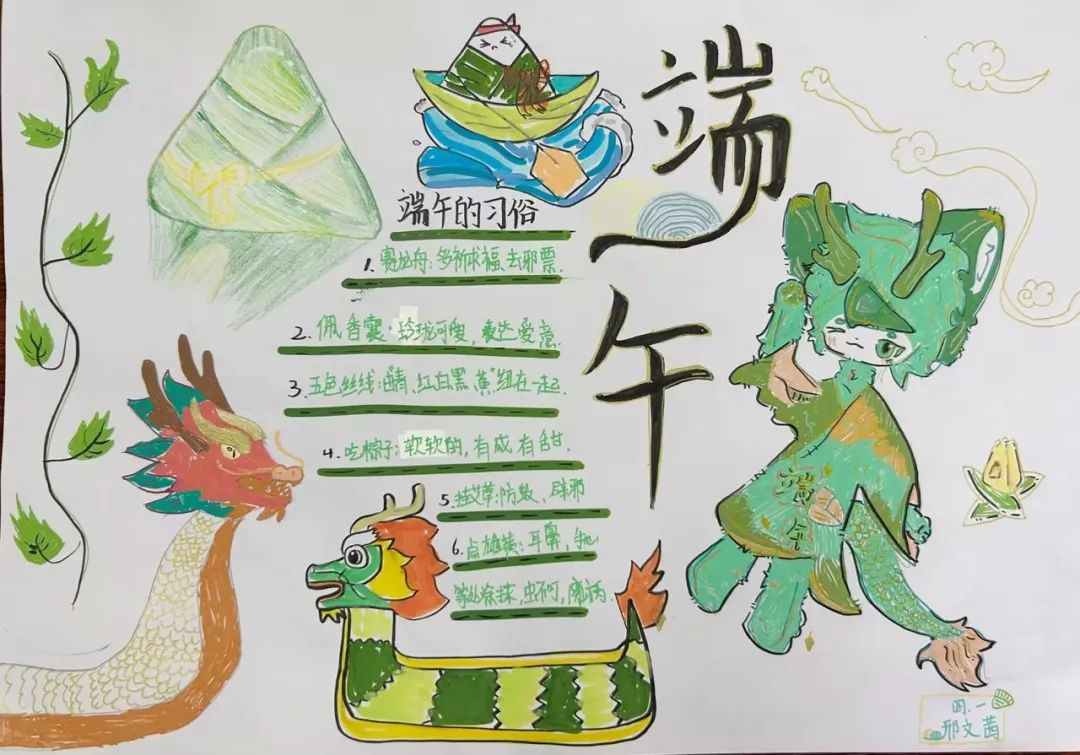 端午
端午的习俗
1. 赛龙舟:多祈求福、去邪
2. 佩香囊:玲珑可爱,表达爱意.
3. 五色丝线:青、红白黑黄"纽在一起.
4. 吃粽子:软软的,有咸有甜.
5. 挂艾草:防蚊、辟邪
6. 点雄黄:耳鼻、手心
等处涂抹,虫不叮,
端午
四.一
邢文茜